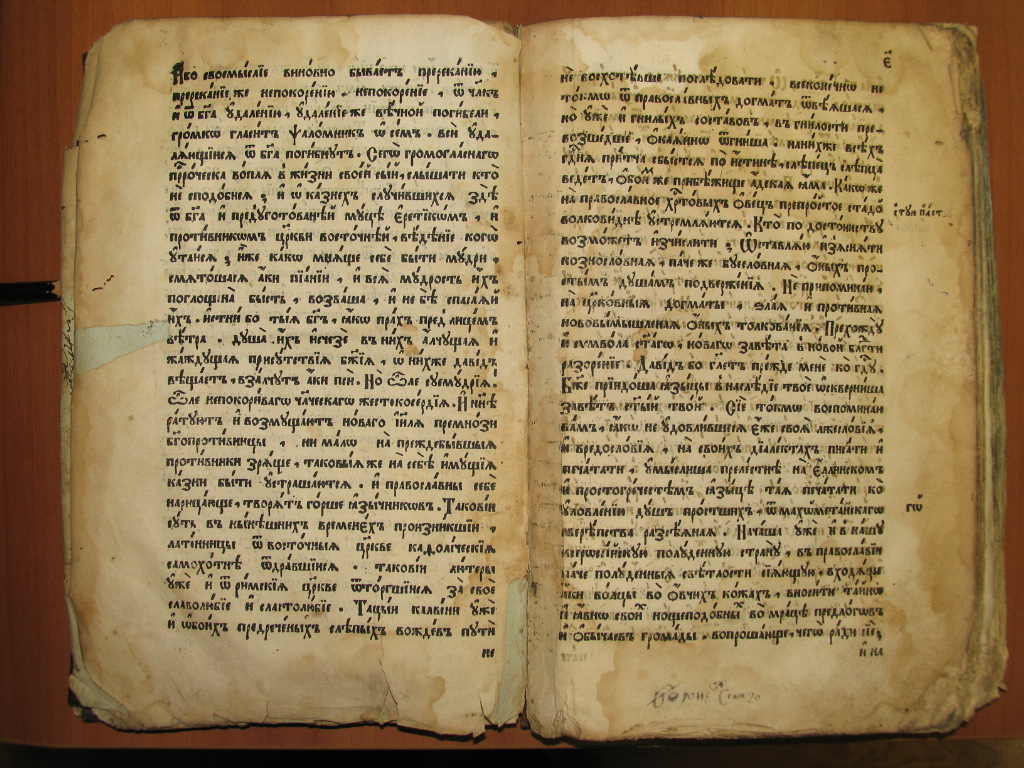 Або своемыслїе виновно бываетъ пререканїю,
пререканїе же непокоренїю. непокоренїе, ѿ
и ѿ бг҃а удаленїи, удаленїе же вѣчной погибели,
громкѡ гласитъ ѱаломник ѡ сем. вси уда-
лѧющїисѧ ѿ бг҃а погибнутъ. Сегѡ громогласнагѡ
прⷪ҇роческа вопля в жизни своей сый, слышати кто
не сподобисѧ; и ѡ казнех случившихся здѣ
ѿ бг҃а и предуготованнѣй муцѣ еретїкѡмъ, и
противникѡмъ цр҃кви восточнѣй, вѣдѣнїе когѡ
утаисѧ; иже какѡ мнѧще себе быти мудри,
смѧтошасѧ аки пїѧнїи, и всѧ мудрость ихъ
поглощена бысть, возваша, и не бѣ спасаѧй
ихъ. истни бо тыѧ бг҃ъ, ѩкѡ прах пред лицемъ
вѣтра. душа их исчезе в них алчущая и
жаждущая присутствїѧ бж҃їѧ, ѡ нихже дави́дъ
вѣщаетъ, взалчутъ аки пси. Но ѽле суемудрїѧ.
Ѽле непокориваго чл҃ческагѡ жестокосердїѧ. И нн҃ѣ
ратуютъ и возмущаютъ новаго іи҃лѧ премнози
бг҃опротивницы, ни малѡ на преждебывшыѧ
противники зрѧще, таковыѧ же на себѣ имущїѧ
казни быти устрашаютсѧ. и православны себе
нарицающе, творѧтъ горше ѩзычникѡвъ. Таковїи
суть в нынѣшних временех произникшїи,
латїнницы ѿ восточныѧ цр҃кве каѳолїческїѧ
самохотнѣ ѿдравшїисѧ. таковїи лютеры
уже и ѿ римскїѧ цр҃кве ѿторгшїисѧ за свое
славолюбїе и сластолюбїе. Тацыи калвини уже
и ѡбоихъ предреченыхъ слѣпыхъ вождевъ пути
не
є҃
не восхотѣвше послѣдовати, всеконечнѡ не
токмѡ ѿ православныхъ догматъ ѿвѣяшасѧ,
но уже и гнилыхъ составовъ, въ гнилости пре-
возшедше, ѡкаѧннѡ ѿгниша. на нихже всѣхъ
сп҃сова притча сбыстсѧ по истиннѣ, слѣпецъ слѣпца
ведетъ, обоим же прибѣжище адская яма. Како же
на православное хрⷭ҇товыхъ овецъ препростое стадо
волковиднѣ устремлѧютсѧ. Кто по достоинству
возможетъ изчислити; Ѡставлѧю изъяснѧти
кознословная, паче же буесловная, оныхъ про-
стымъ душамъ подверженїѧ. Не припоминаю,
на цр҃ковныѧ догматы, ѕлаѧ и противная
нововымышленая оныхъ толкованїѧ. Прехожду
и сѵмвола ст҃аго, новагѡ завѣта в новой бл҃гти
разоренїе. Дави́дъ бо гл҃етъ прежде мене ко гдⷭ҇у.
Бж҃е прїидоша ѩзыцы в наслѣдїе твое ѡсквернша
завѣтъ ст҃ый твой. Сїе токмѡ воспоминаю
вамъ, ѩкѡ не удовлившесѧ еже своѧ лжесловїѧ,
и вредословїѧ, на своихъ дїалектахъ писати и
печатати, умыслиша прелестнѣ на еллинскомъ
и простогреческѣмъ ѩзыцѣ таѧ печатати ко
уловленїю душъ простшихъ, ѿ махометанскагѡ
сверѣпства разсѣянная. Начаша уже и в нашу
всероссійскую полуденную страну, въ православїи
паче полуденныѧ свѣтлости сїѧющую, входѧще
аки волцы во овчих кожахъ, вносити тайнѡ
и ѩвнѡ свой нощеподобный во мрацѣ предлогѡвъ
и обычаевъ громады. вопрошающе, чегѡ ради не;
и на